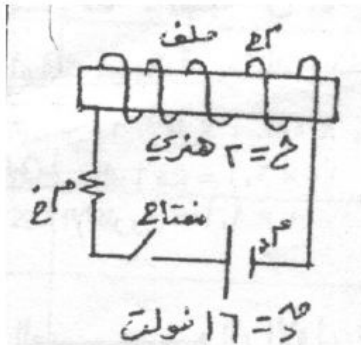 م ح ملف
ح = ٢ هنري
م خ
مفتاح
م د
ق د = ١٦ فولت